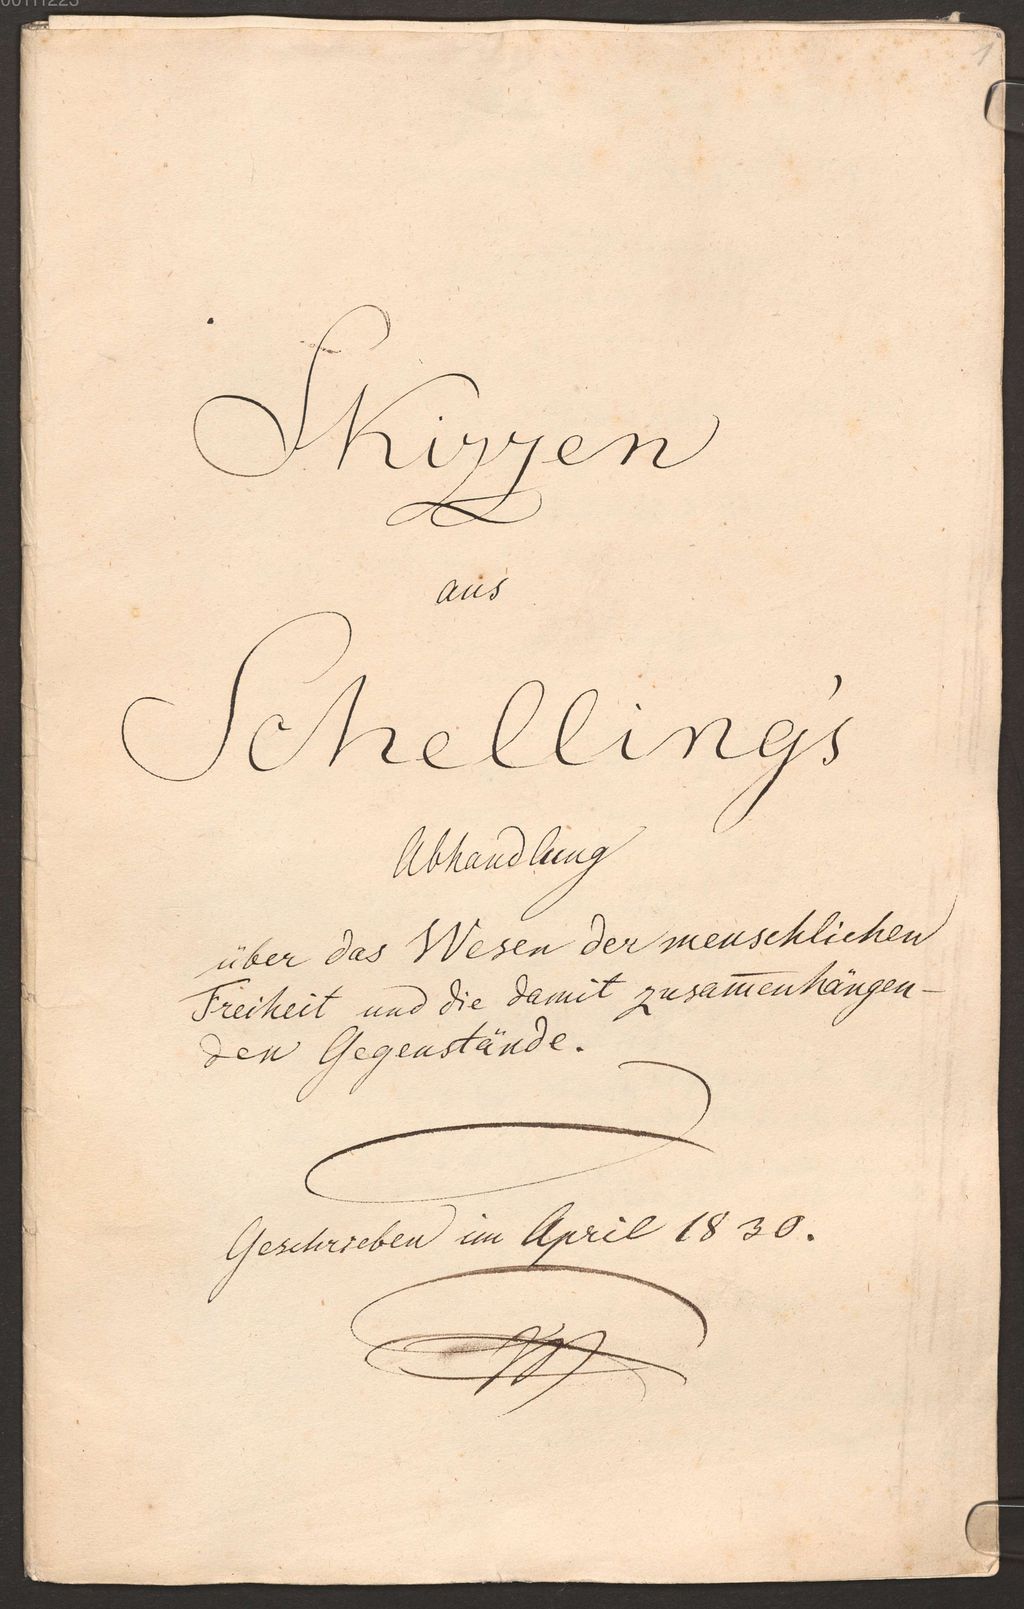 00111223
1
Skizzen
aus
Schelling's
Abhandlung
über das Wesen der menschlichen
Freiheit und die damit zusam̅enhängen-
den Gegenstände.
Geschrieben im April 1830.